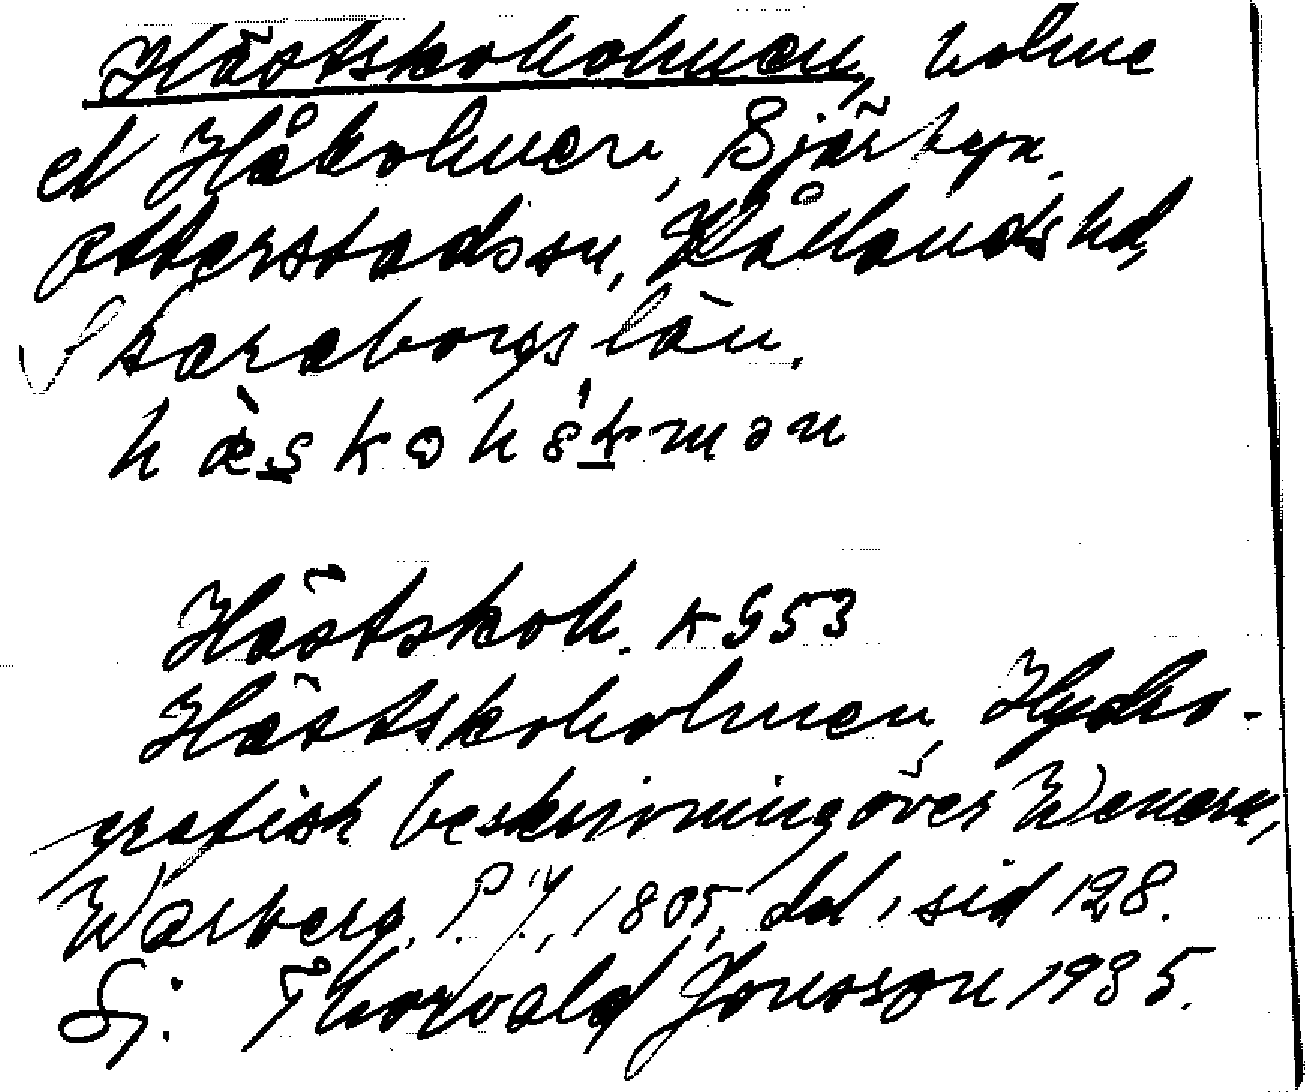 Hästskoholmen, holme
N Håkolmen, Bjärbyn.
Otterstads sn, Kållands hd,
Skaraborgs län.
hæ̀skohól̥mən
Hästskoh. KG53
Hästskoholmen, Hydro-
grafisk beskrivning över Wenern,
Warberg. P. y, 1805, del 1 sid 128.
Gj: Thorvald Jonsson 1935.